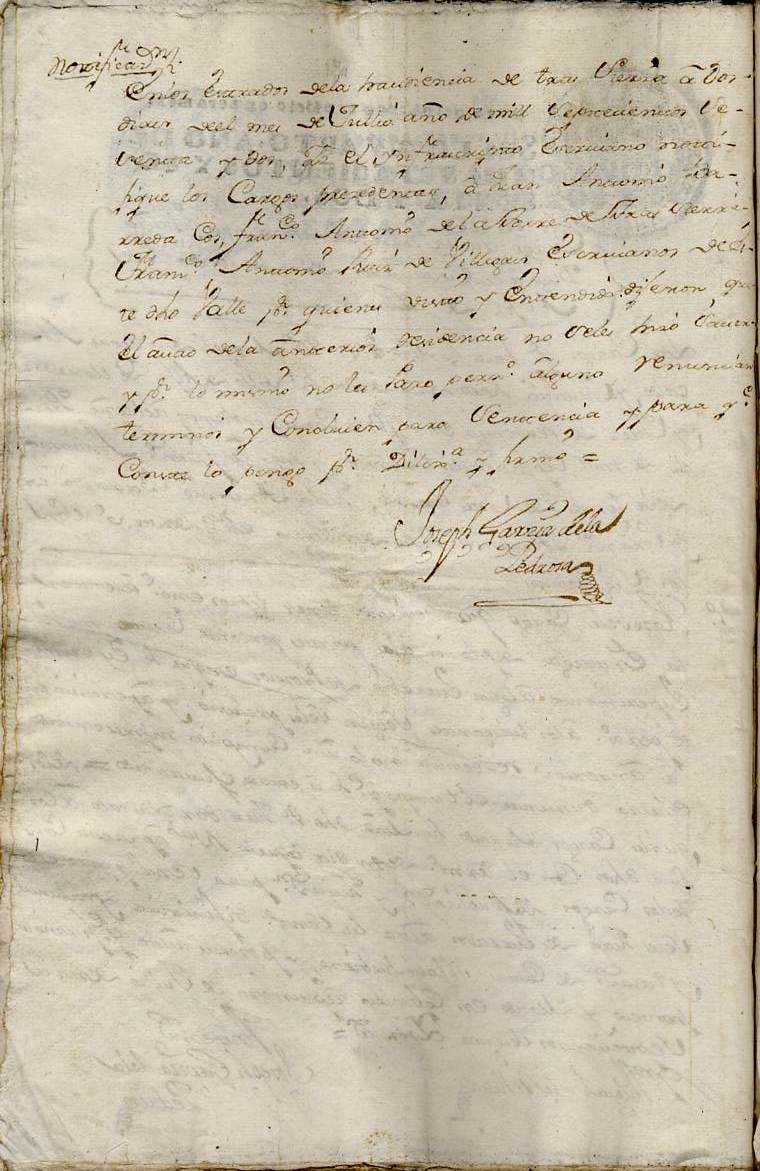 Notificaz.on
En los estrados de la haudiencia de tras Sierra a dos
dias del mes de Jullio año de mill Setecientos se-
senta y dos, el Ynfraescripto Escriuano noti-
fique los Cargos prezedentes, a Juan Antonio
rreda Franco. Antonio de la Torre de tras Sierra
Franco. Antonio Ruiz de Villegas Escriuanos de es-
te dho Valle pr. quienes visto y entendido dijeron que
el auto de la anterior residencia no se les hizo sauer
y pr. lo mismo no les paro perjo. alguno renuncian
terminos y Concluien para Sentencia y para qe.
Conste lo pongo pr. Dilixa. y firmo =
Joseph Garzia de la
Pedrosa